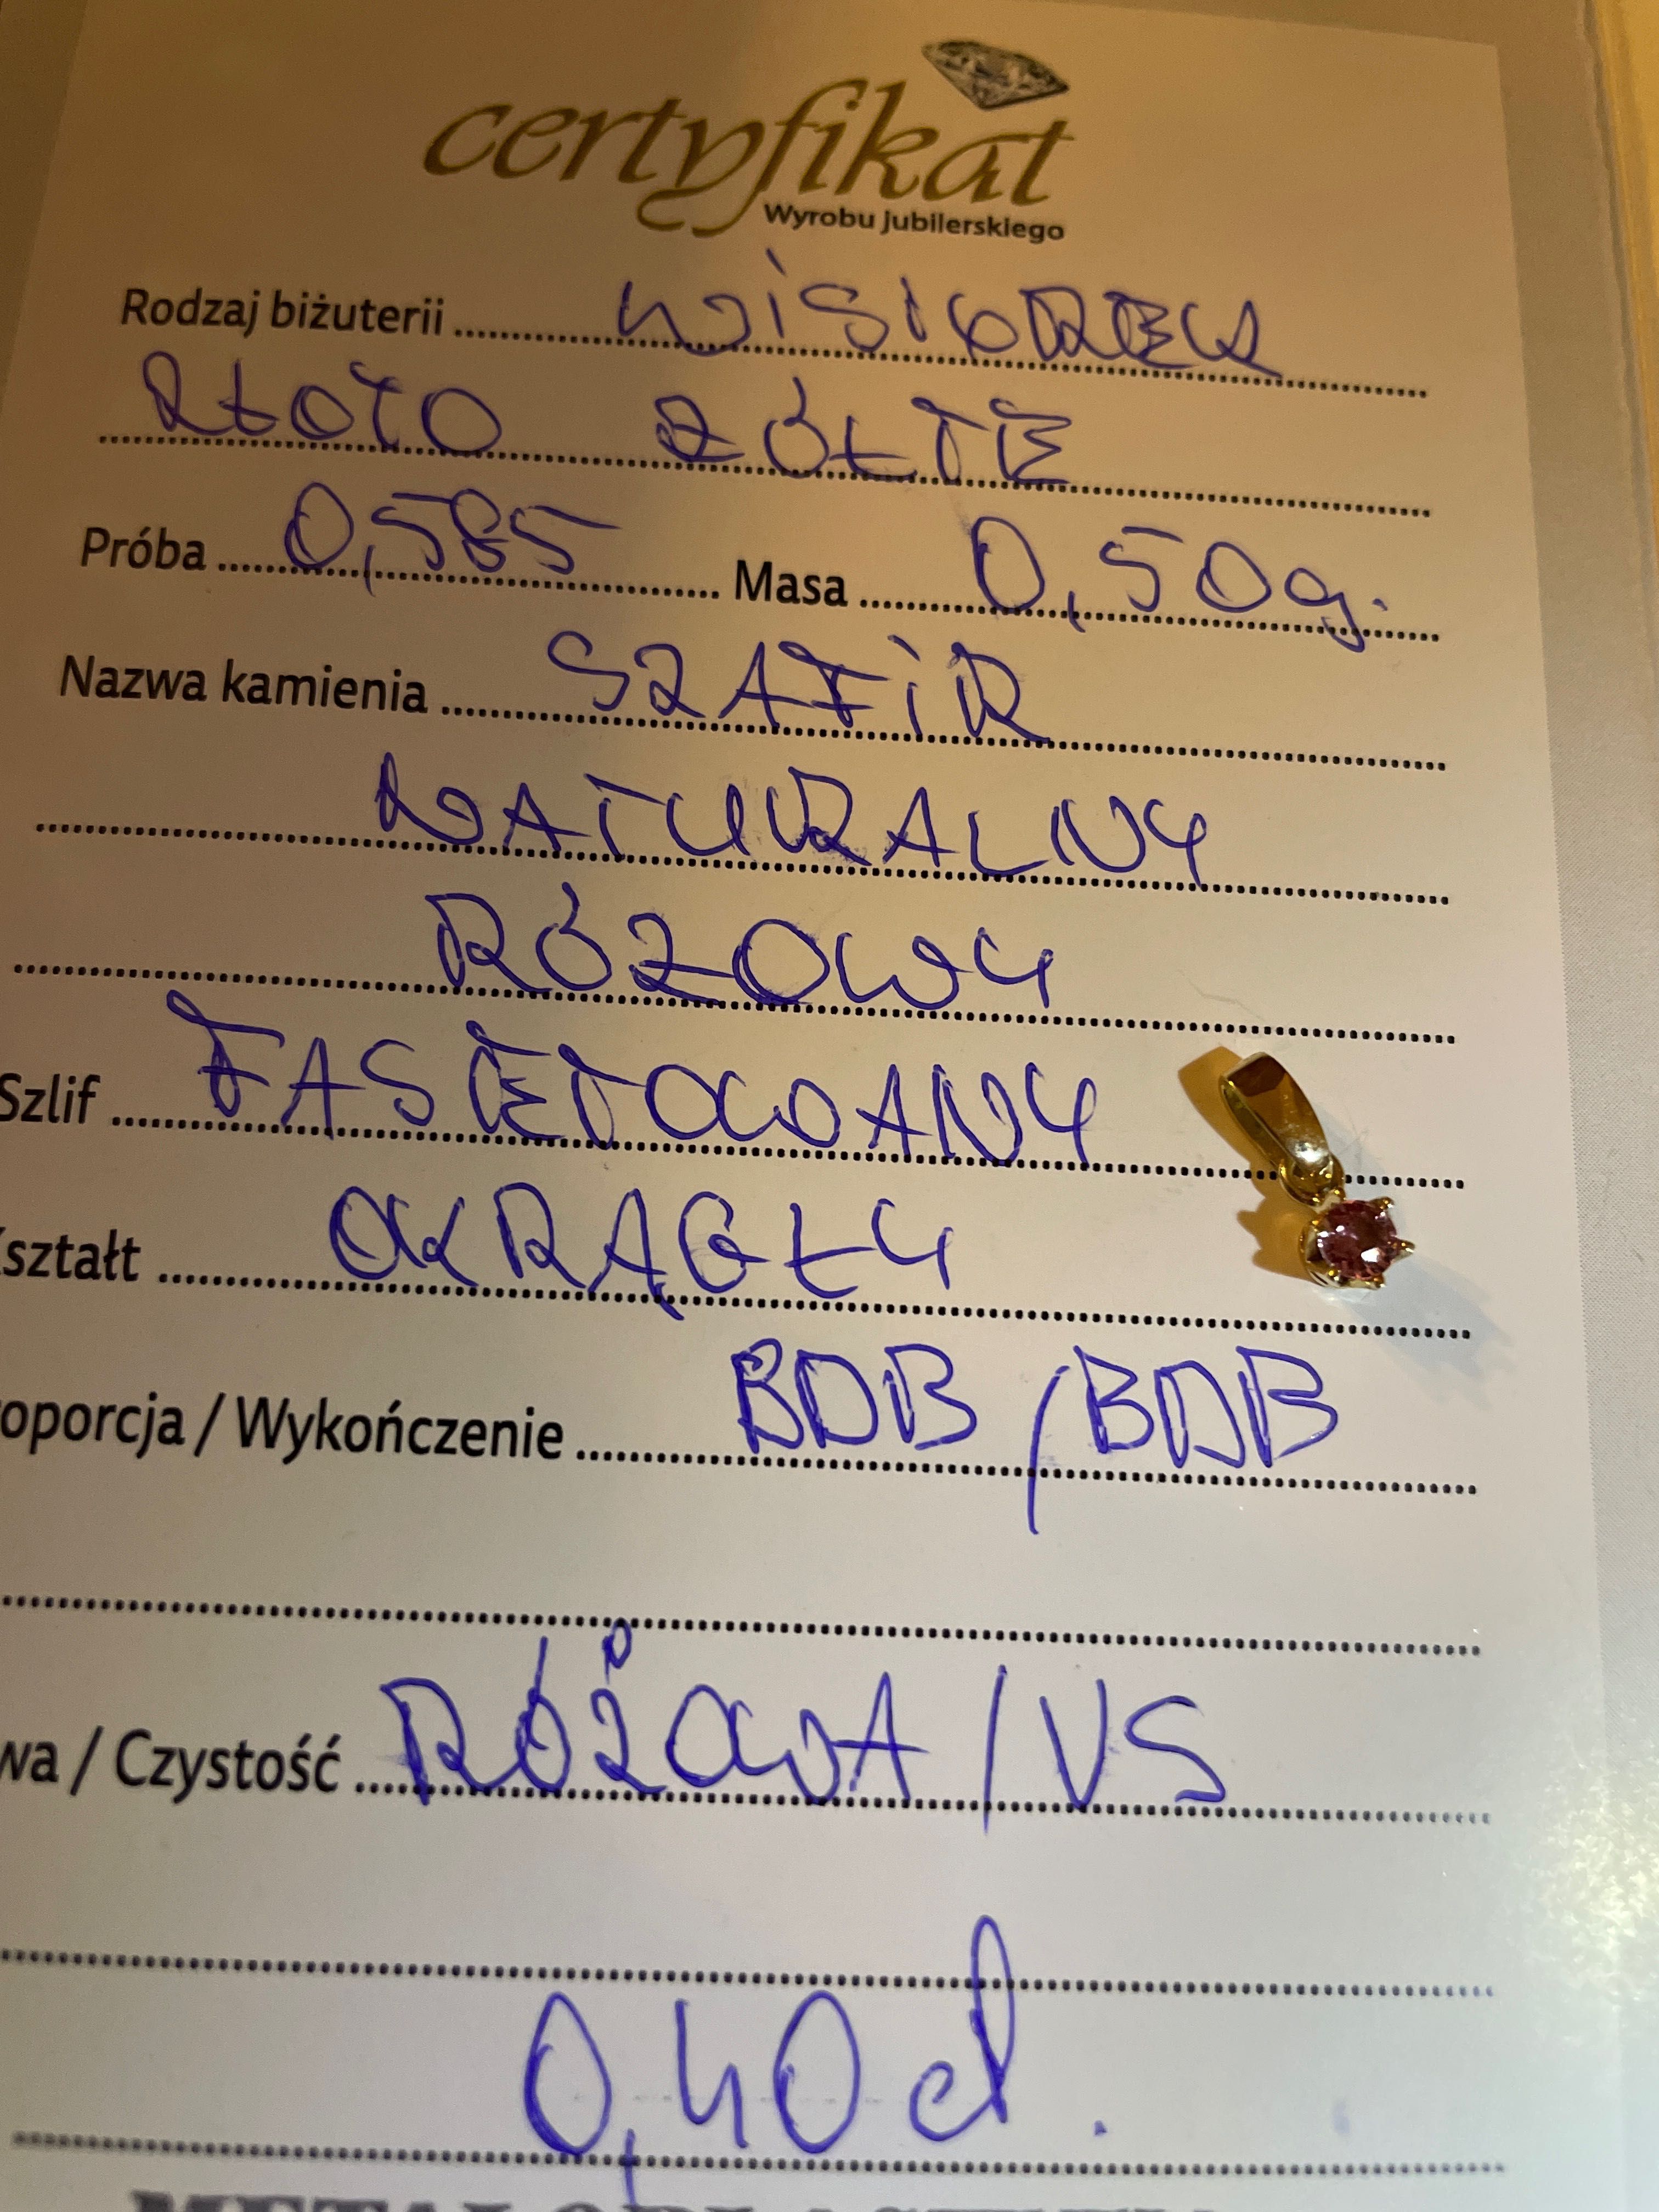 certyfikat
Wyrobu Jubilerskiego
Rodzaj biżuterii WISIOREK
ZŁOTO ŻÓŁTE
Próba 0,585 Masa 0,50g.
Nazwa kamienia SZAFIR
NATURALNY
RÓŻOWY
Szlif FASETOWANY
ształt OKRĄGŁY
oporcja / Wykończenie BDB / BDB
wa / Czystość RÓŻOWA / VS
0,40 ct.